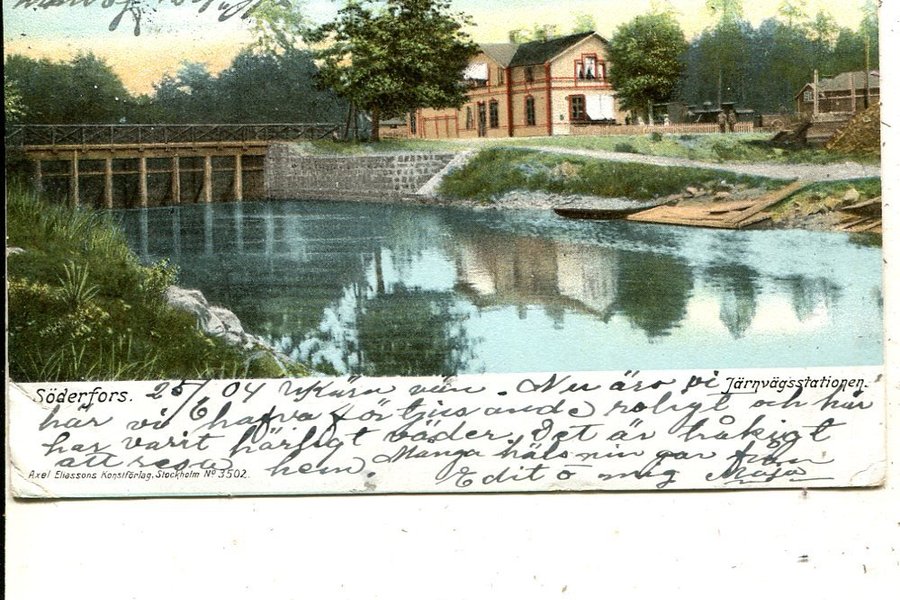 Söderfors. 25/6 04 Kära vän. Nu äro vi Järnvägsstationen.
här vi hafva förtjusande roligt och här
har varit härligt väder. Det är tråkigt
att resa hem. Många hälsningar från
Axel Eliassons Konstförlag. Stockholm No 3502. Edit o mig Maja